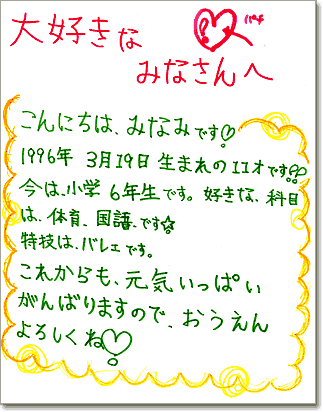 大好きな
みなさんへ
こんにちは、みなみです♡
1996年 3月19日 生まれの11才です!!
今は、小学6年生です。好きな、科目
は、体育、国語、です☆
特技は、バレエです。
これからも、元気いっぱい
がんばりますので、おうえん
よろしくね♡